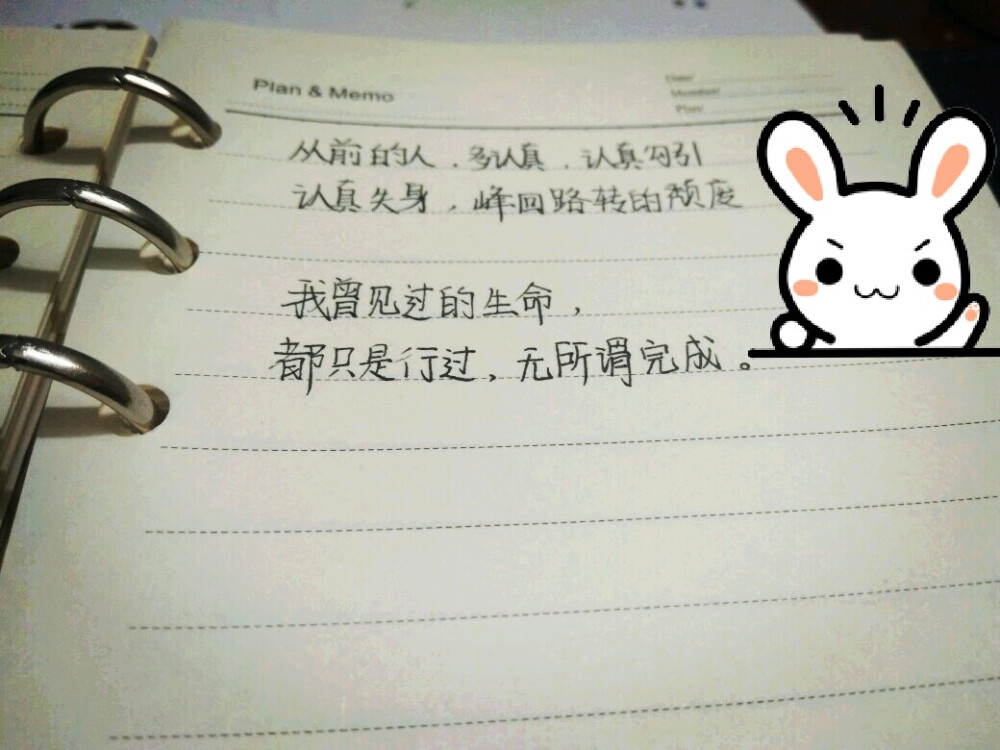 Plan & Memo
Date:
Number:
从前的人，多认真，认真勾引
认真失身，峰回路转的颓度
我曾见过的生命，
都只是行过，无所谓完成。